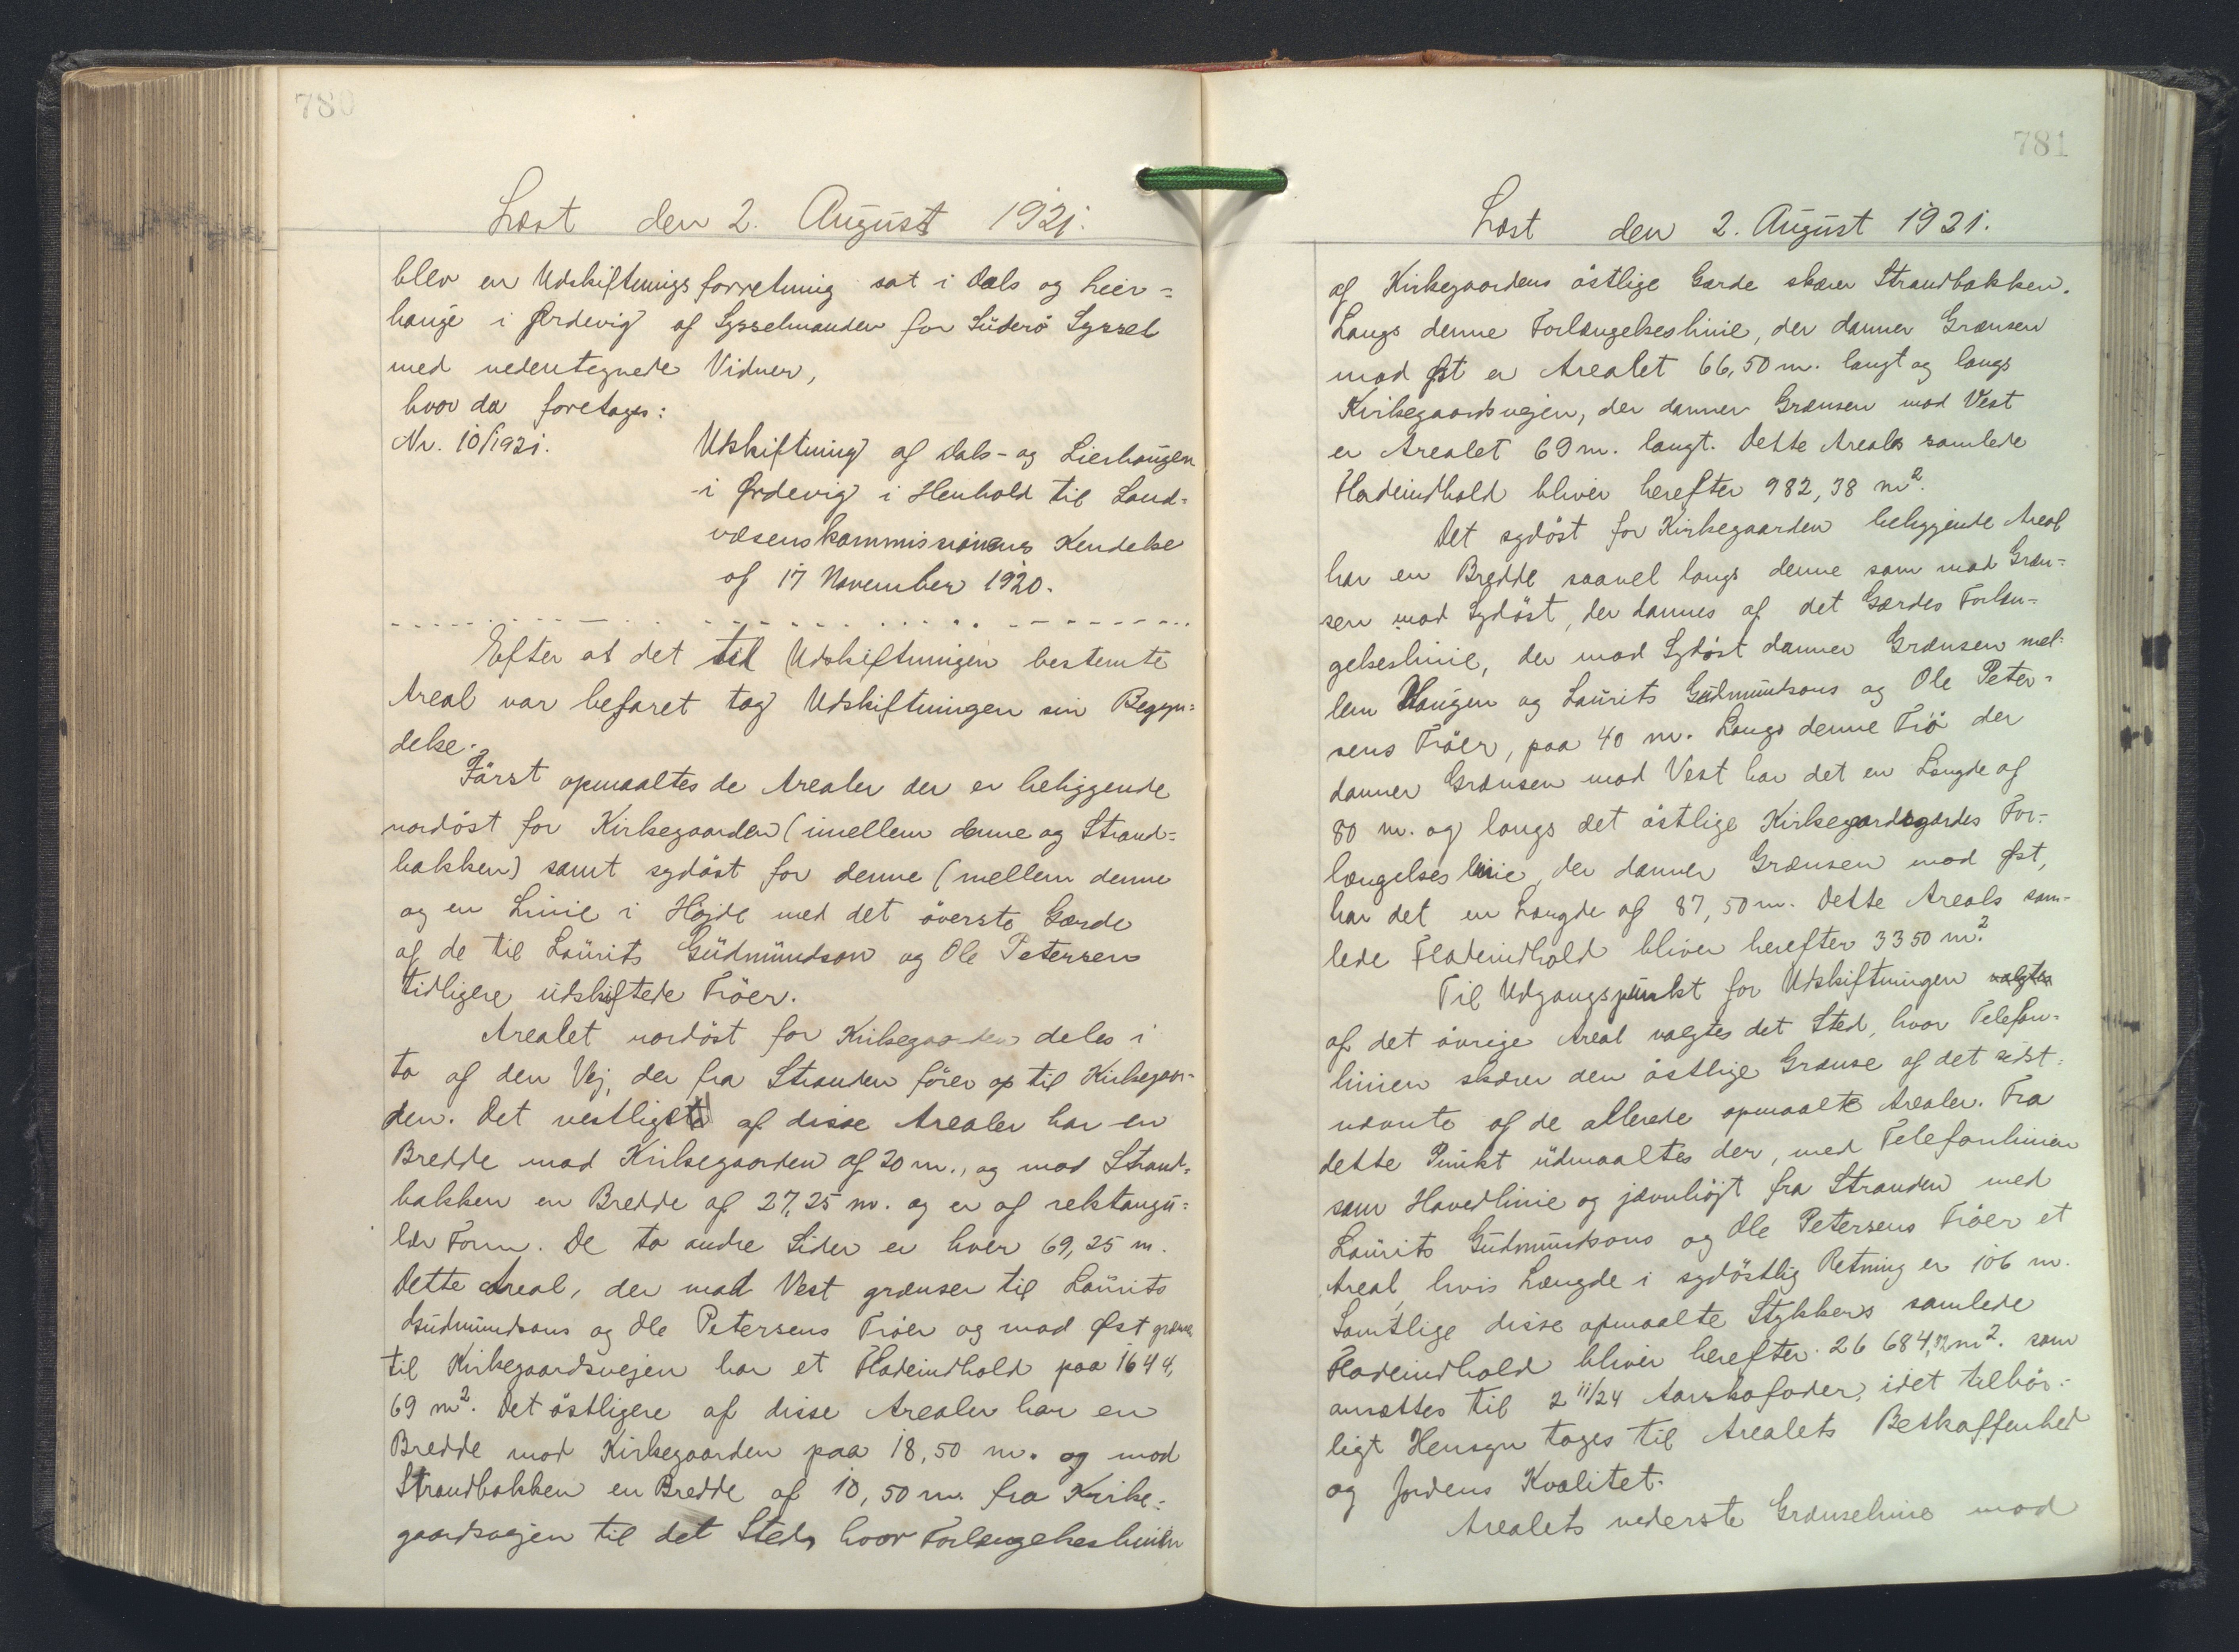 780
Læst den 2. August 1921.
blev en Udskiftningsforretning sat i Dals og Lier=
hauge i Ørdevig af Sysselmanden for Suderö Syssel
med undertegnede Vidner,
hvor da foretoges:
Nr. 10/1921. Udskiftning af Dals- og Lierhaugen
i Ørdevig i Henhold til Land=
væsenskommissionens Kendelse
af 17 November 1920.
Efter at det til Udskiftningen bestemte
Areal var befaret tog Udskiftningen sin Begyn=
delse.
Först opmaaltes de Arealer der er beliggende
nordöst for Kirkegaarden (imellem denne og Strand=
bakken) samt sydöst for denne (mellem denne
og en Linie i Höjde med det överste Gærde
af de til Laurits Gudmundson og Ole Petersen
tidligere udskiftede Tröer.
Arealet nordöst for Kirkegaarden deles i
to af den Vej, der fra Stranden förer op til Kirkegaar=
den. Det vestligste af disse Arealer har en
Bredde mod Kirkegaarden af 20 m., og mod Strand=
bakken en Bredde af 27,25 m. og er af rektangu=
lær Form. De to andre Sider er hver 69,25 m.
Dette Areal, der mod Vest grænser til Laurits
Gudmundsons og Ole Petersens Tröer og mod Øst grænser
til Kirkegaardsvejen har et Fladeindhold paa 1644,
69 m². Det östligere af disse Arealer har en
Bredde mod Kirkegaarden paa 18,50 m. og mod
Strandbakken en Bredde af 10,50 m. fra Kirke=
gaardsvejen til det Sted, hvor Forlængelseslinien
781
Læst den 2. August 1921.
af Kirkegaardens östlige Gærde skærer Strandbakken.
Langs denne Forlængelseslinie, der danner Grænsen
mod Øst er Arealet 66,50 m. langt og langs
Kirkegaardsvejen, der danner Grænsen mod Vest
er Arealet 69 m. langt. Dette Areals samlede
Fladeindhold bliver herefter 982,38 m².
Det sydöst for Kirkegaarden beliggende Areal
har en Bredde saavel langs denne som mod Græn=
sen mod Sydöst, der dannes af det Gærdes Forlæn=
gelseslinie, der mod Sydöst danner Grænsen mel=
lem Haugen og Laurits Gudmundsons og Ole Peter=
sens Tröer, paa 40 m. Langs denne Trö der
danner Grænsen mod Vest har det en Længde af
80 m. og langs det östlige Kirkegaardsgærdes For=
længelseslinie, der danner Grænsen mod Øst,
har det en Længde af 87,50 m. Dette Areals sam=
lede Fladeindhold bliver herefter 3350 m².
Til Udgangspunkt for Udskiftningen valgtes
af det övrige Areal valgtes det Sted, hvor Telefon=
linien skærer den östlige Grænse af det sidst=
nævnte af de allerede opmaalte Arealer. Fra
dette Punkt udmaaltes der, med Telefonlinien
som Hovedlinie og jævnhöjt fra Stranden med
Laurits Gudmundsons og Ole Petersens Tröer et
Areal, hvis Længde i sydöstlig Retning er 106 m.
Samtlige disse opmaalte Stykkers samlede
Fladeindhold bliver herefter 26 684,32 m². som
ansættes til 2 11/24 Aarskofoder, idet tilbör=
ligt Hensyn tages til Arealets Beskaffenhed
og Jordens Kvalitet.
Arealets nederste Grænselinie mod